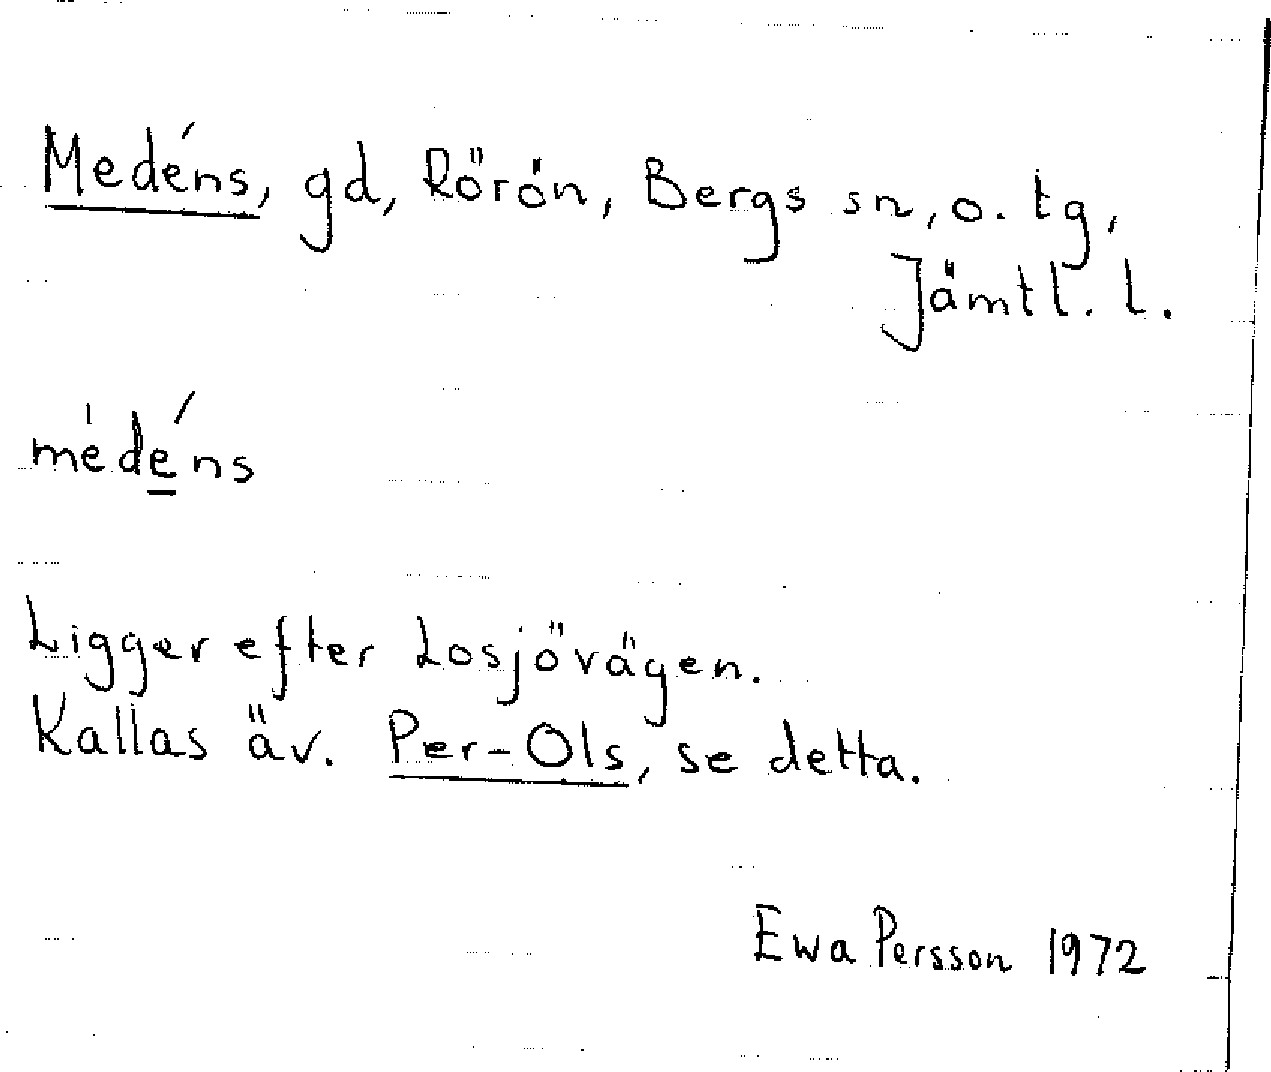 Medéns, gd, Rörön, Bergs sn, o. tg,
Jämtl. l.
médéns
Ligger efter Losjövägen.
Kallas äv. Per-Ols, se detta.
Ewa Persson 1972